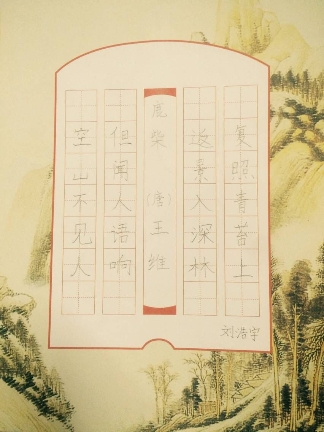 空山不见人
但闻人语响
鹿柴（唐）王维
返景入深林
复照青苔上
刘浩宇